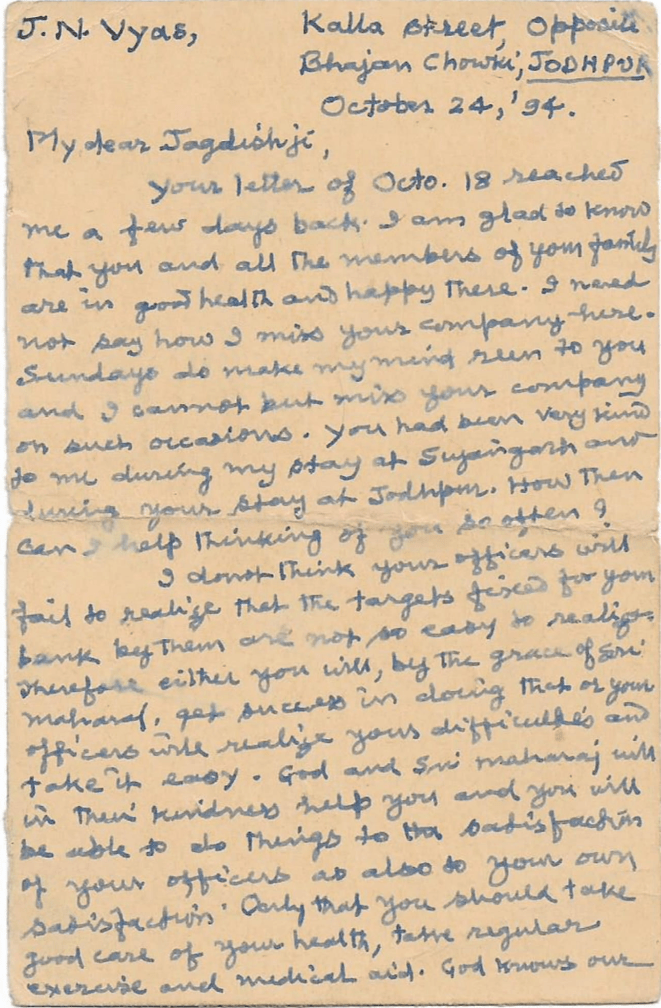 J. N. Vyas,
Kalla Street, Opposite
Bhajan Chowki, JODHPUR
October 24, '94.
My dear Jagdishji,
Your letter of Octo. 18 reached
me a few days back. I am glad to know
that you and all the members of your family
are in good health and happy there. I need
not say how I miss your company here.
Sundays do make my mind run to you
and I cannot but miss your company
on such occasions. You had been very kind
to me during my stay at Sujangarh and
during your stay at Jodhpur. How then
can I help thinking of you so often?
I donot think your officers will
fail to realize that the targets fixed for your
bank by them are not so easy to realize.
Therefore either you will, by the grace of Sri
Maharaj, get success in doing that or your
officers will realize your difficulties and
take it easy. God and Sri Maharaj will
in their kindness help you and you will
be able to do things to the satisfaction
of your officers as also to your own
satisfaction. Only that you should take
good care of your health, take regular
exercise and medical aid. God knows our